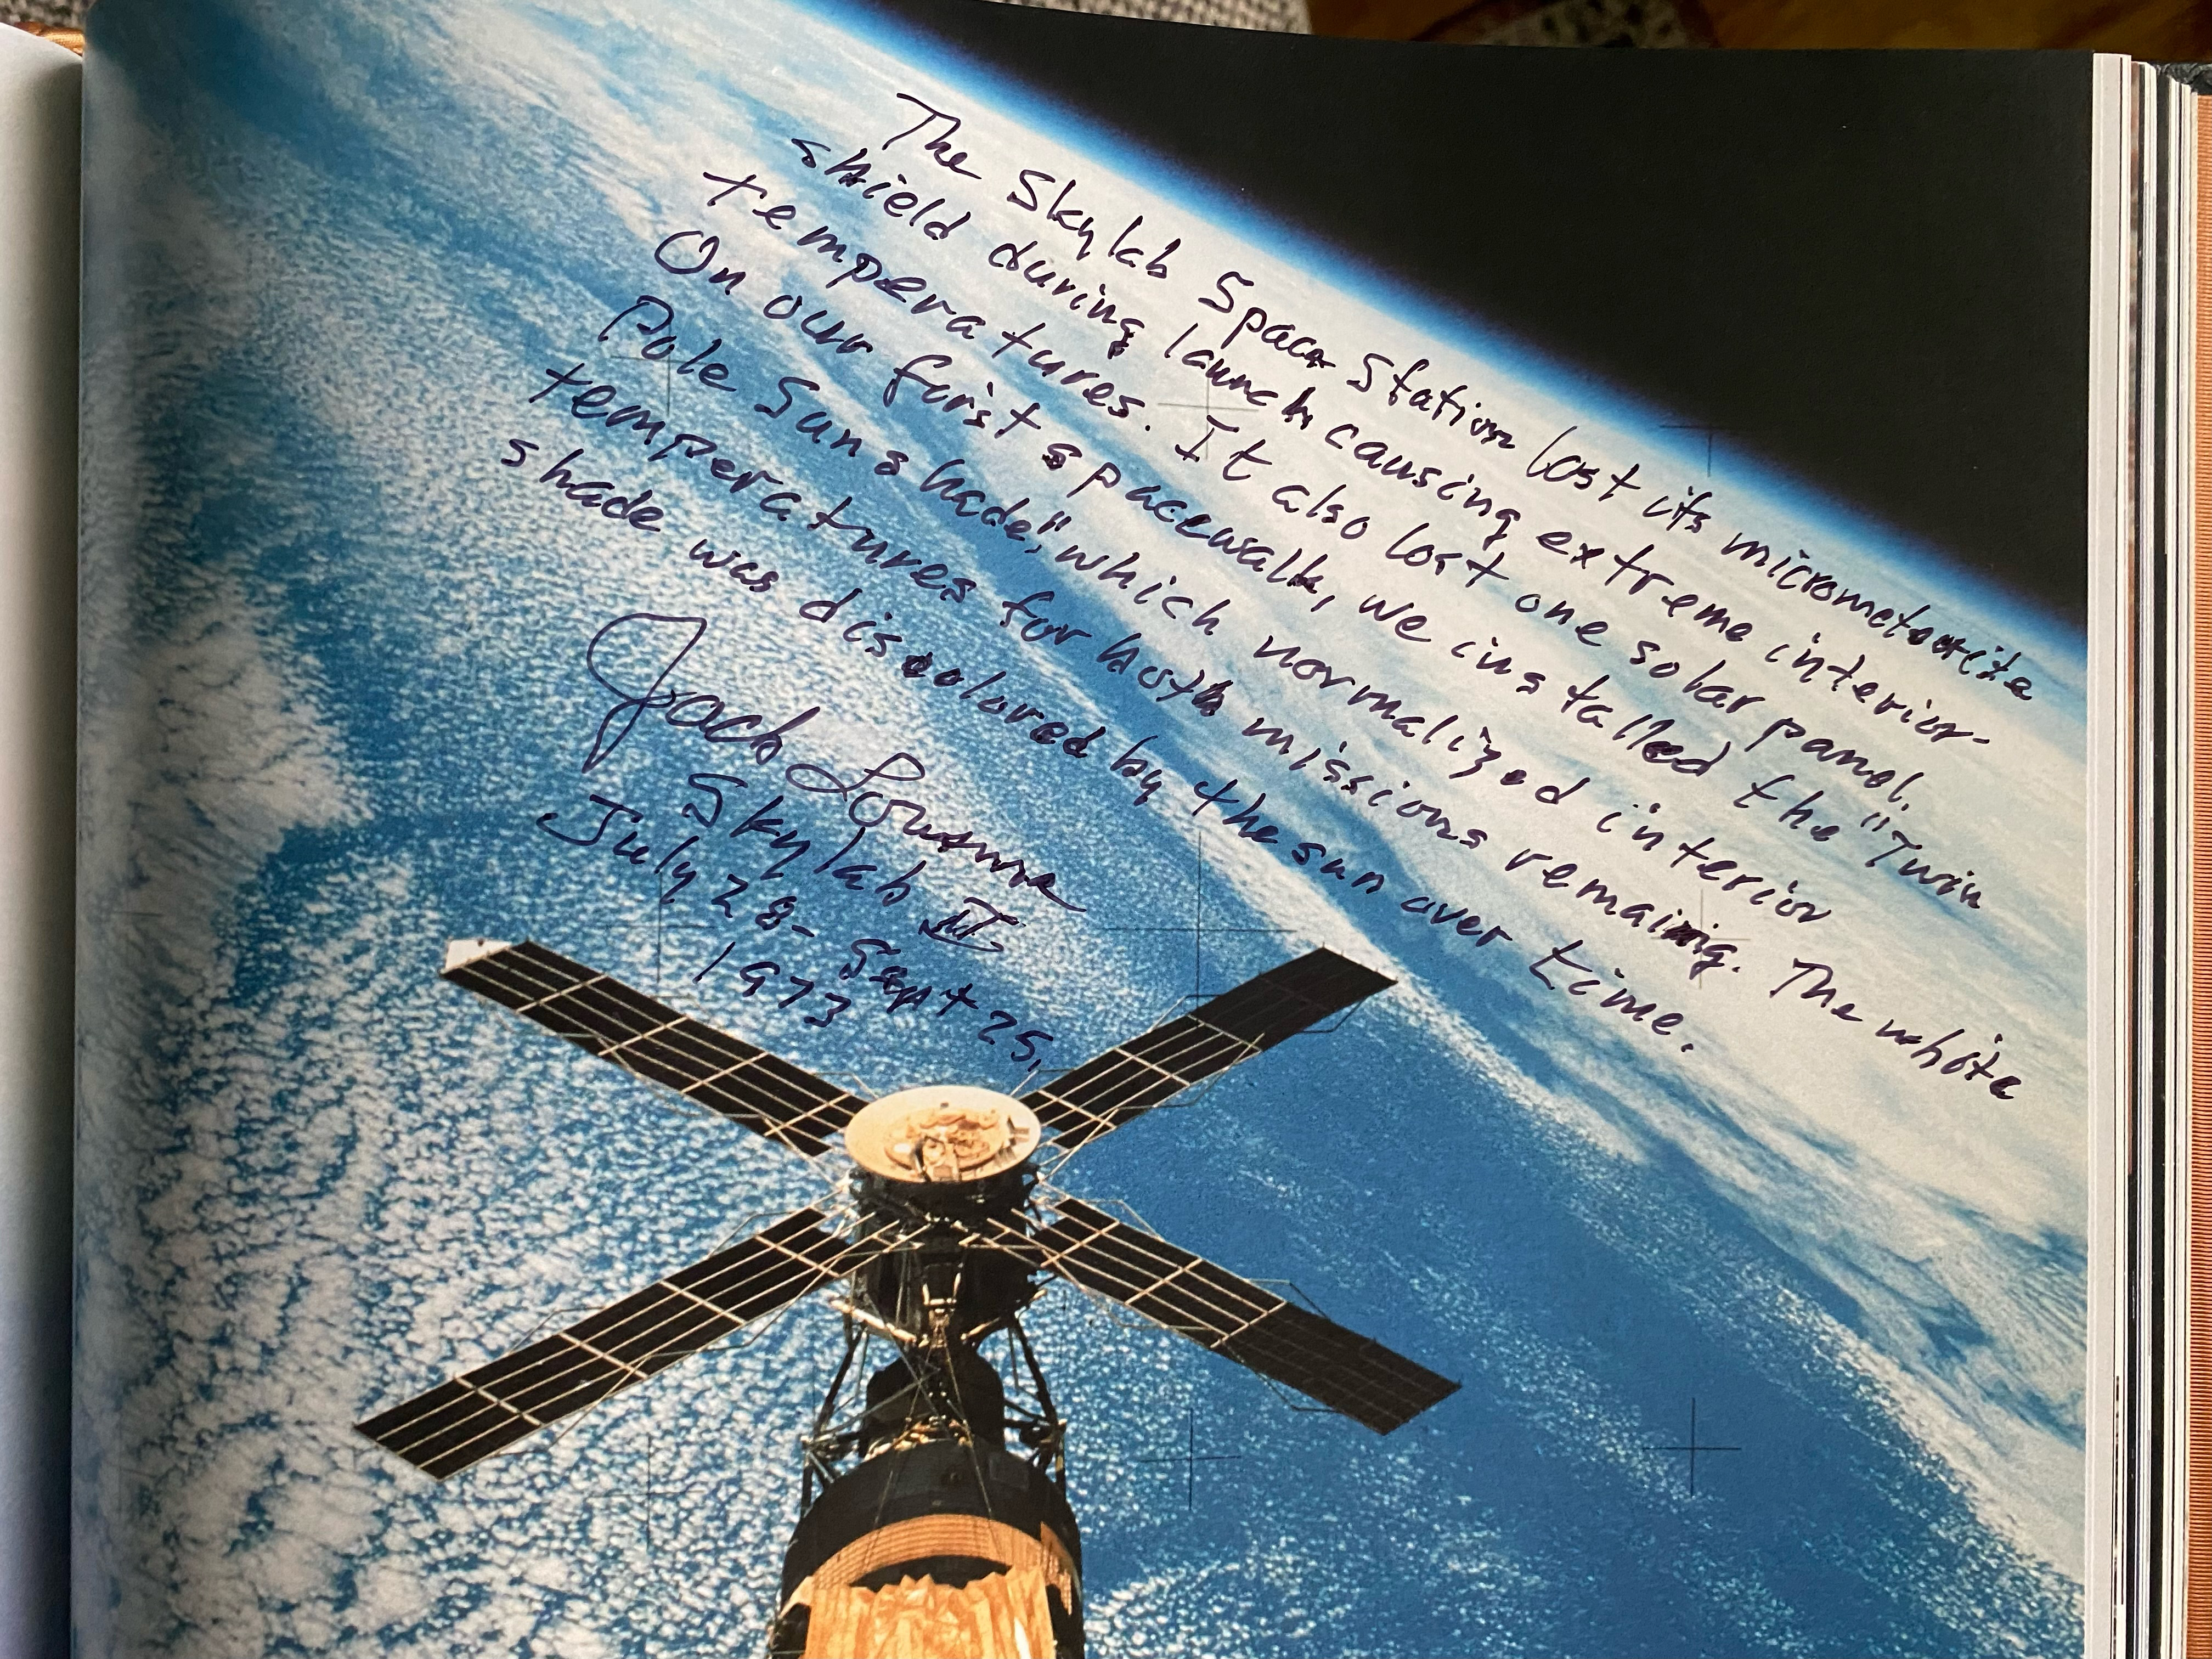 The Skylab Space Station lost its micrometeorite
shield during launch, causing extreme interior
temperatures. It also lost one solar panel.
On our first spacewalk, we installed the "Twin
Pole Sunshade," which normalized interior
temperatures for both missions remaining. The white
shade was discolored by the sun over time.
Jack Lousma
Skylab II
July 28- Sept 25,
1973